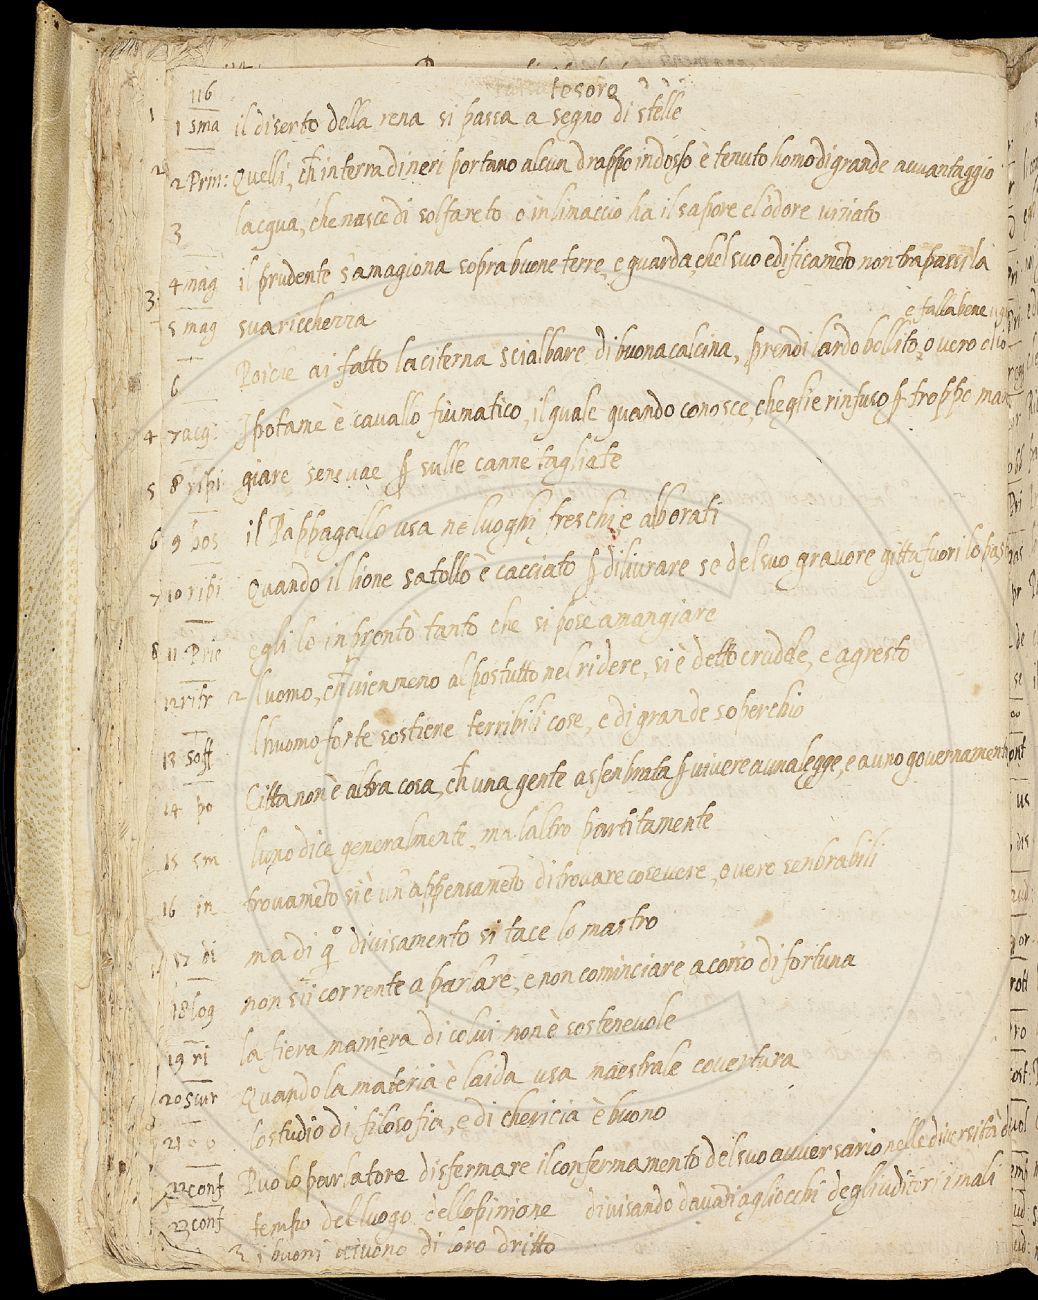 116
tesoro
1 1 sma il diserto della rena si passa a segno di stelle
2 2 Prin: Quelli, ch in terra di neri portano alcun drappo indosso è tenuto homo di grande avvantaggio
3 lacqua, che nasce di solfareto o in limaccio ha il sapore el odore viziato
4 mag il prudente s'amagiona sopra buone terre, e guarda, chel suo edificameto non trapassi la
3 5 mag sua riccherza
e falla bene
6 Poi che ai fatto la citerna scialbare di buona calcina, prendi lardo bollito, o vero olio
4 7 acq: Ipotame è cavallo fiumatico, il quale quando conosce, che gli e rinfuso p troppo man
5 8 ripi giare sen va e p sulle canne tagliate
6 9 bos il Pappagallo usa ne luoghi freschi e alborati
7 10 ribi Quando il lione satollo è cacciato p diliurare se del suo gravore gitta fuori lo pasto
8 11 Prie egli lo inprontò tanto che si pose a mangiare
12 rifr 2 luomo, ch vien meno al postutto nel ridere, si è detto crudele, e agresto
13 soff lhuomo forte sostiene terribili cose, e di grande soperchio
14 po Citta non è altra cosa, ch una gente assenbrata p vivere a una legge, e a uno governamento
15 sm luno dice generalmente, ma laltro partitamente
16 in trovameto si è un appensameto di trovare cose vere, o vere senbrabili
17 di ma di qo divisamento si tace lo mastro
18 log non sii corrente a parlare, e non cominciare a corso di fortuna
19 ri la fiera maniera di colui non è sostenevole
20 Quando la materia è laida usa maestrale covertura
21 lo studio di filosofia, e di chericia è buono
22 conf Puo lo parlatore disfermare il confermamento del suo avversario nelle diversità
23 conf tempo del luogo dellopinione divisando davati agliocchi degliuditori i mali
3 i buoni di loro dritto